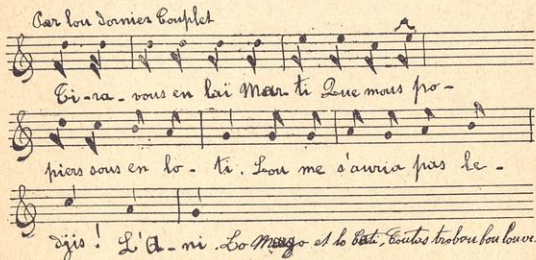 Par lou dornier Couplet
Ti-ra-vous en laï Mar-ti Que mous po-
piers sous en lo-ti. Lou me s'auria pas le-
djis! L'A-ni. Lo Margo et lo Cati, toutas trobou bou louvi.